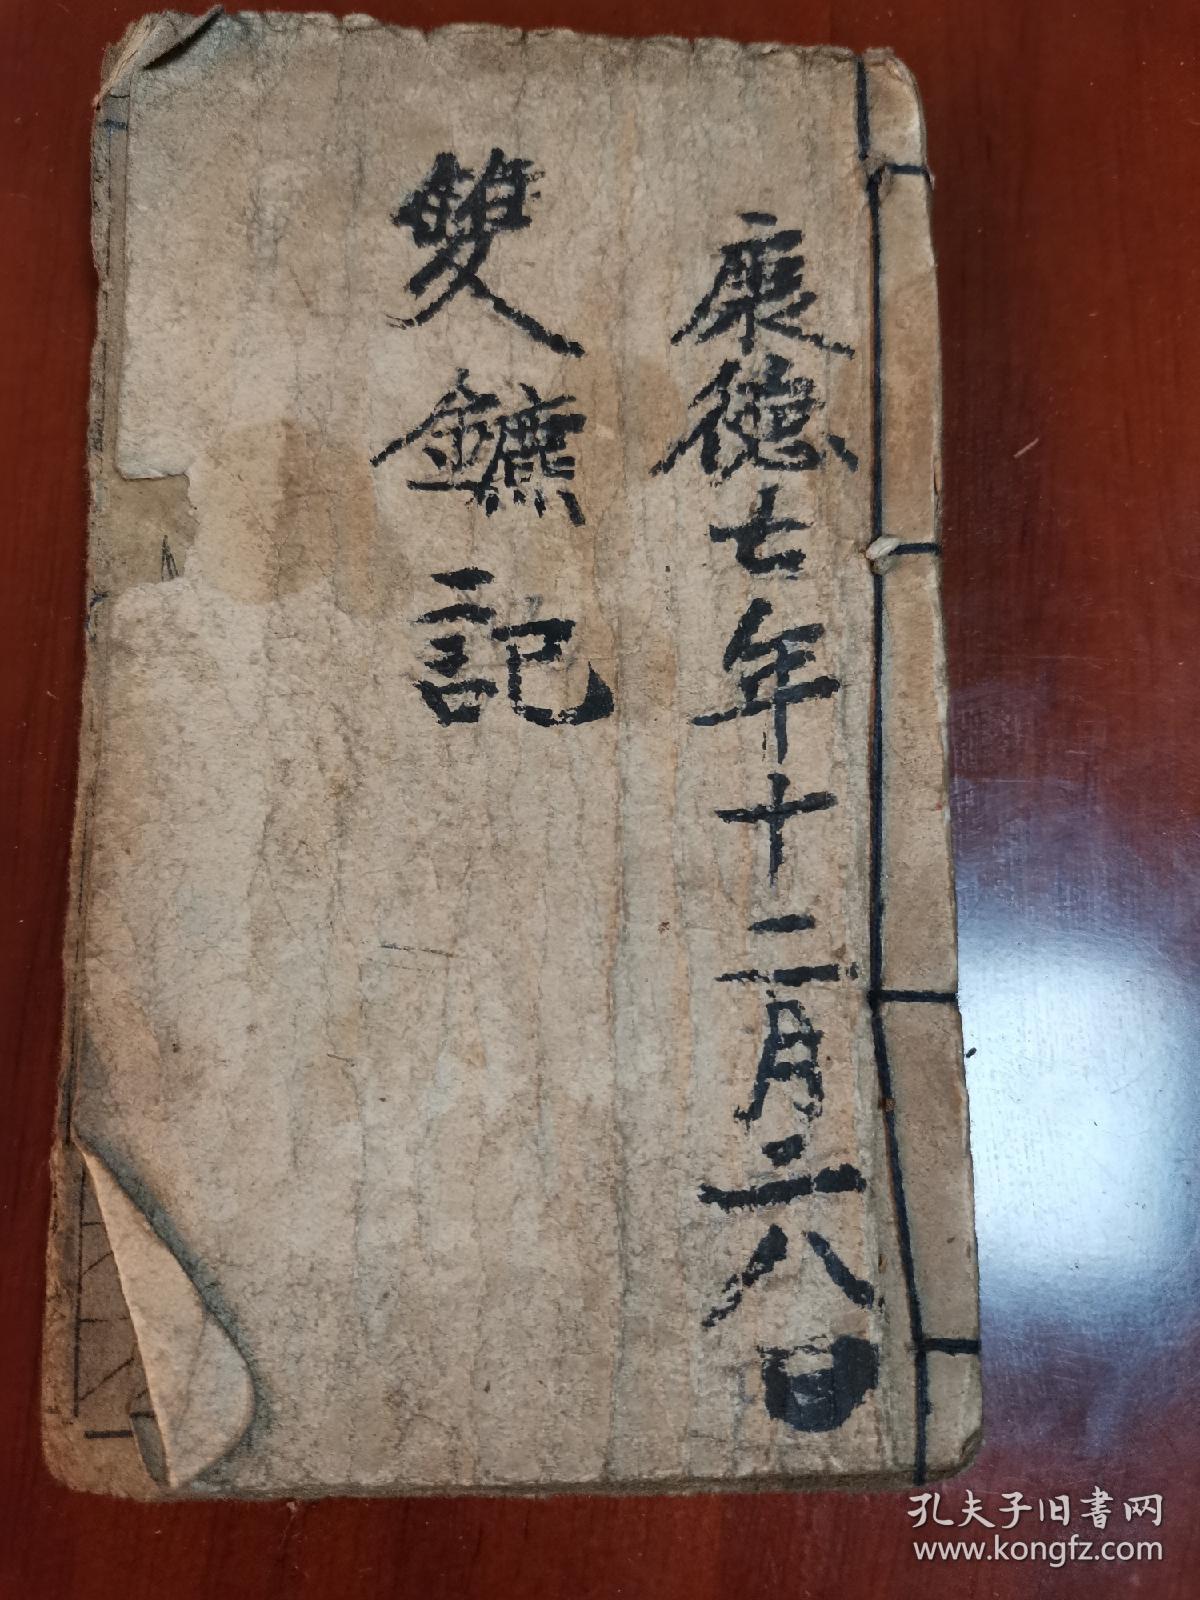 康德七年十二月二八日
雙鑣記
孔夫子旧書网
www.kongfz.com